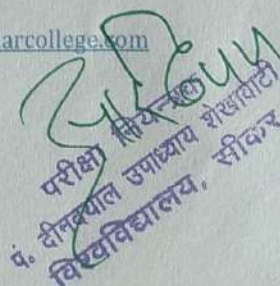 arcollege.com
परीक्षा नियन्त्रक
पं. दीनदयाल उपाध्याय शेखावाटी
विश्वविद्यालय, सीकर